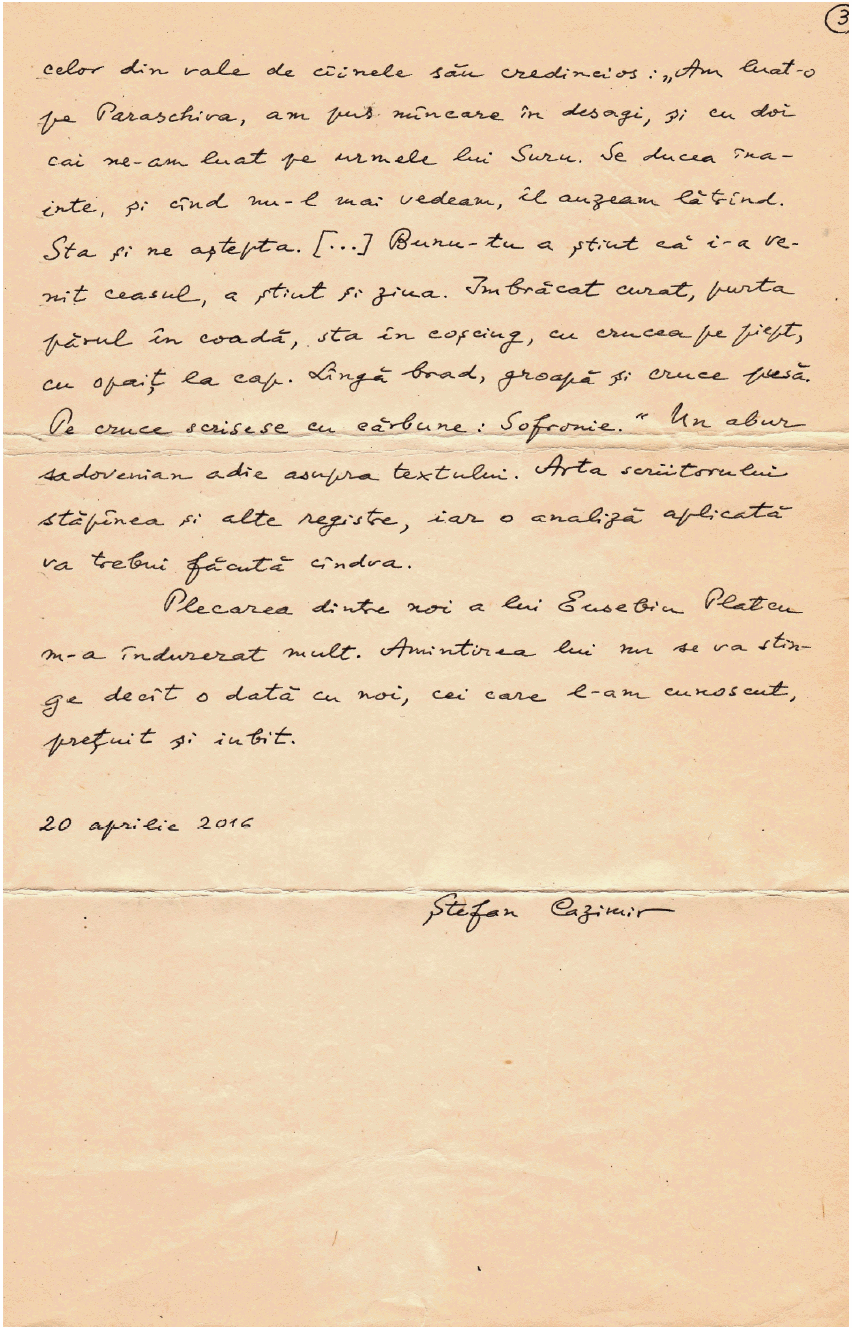 3
celor din vale de cîinele său credincios: „Am luat-o
pe Paraschiva, am pus mîncare în desagi, și cu doi
cai ne-am luat pe urmele lui Suru. Se ducea îna-
inte, și cînd nu-l mai vedeam, îl auzeam lătrînd.
Sta și ne aștepta. [...] Bunu-tu a știut că i-a ve-
nit ceasul, a știut și ziua. Îmbrăcat curat, purta
părul în coadă, sta în coșciug, cu crucea pe piept,
cu opaiț la cap. Lîngă brad, groapă și cruce pusă.
Pe cruce scrisese cu cărbune: Sofronie.“ Un abur
sadovenian adie asupra textului. Arta scriitorului
stăpînea și alte registre, iar o analiză aplicată
va trebui făcută cîndva.
Plecarea dintre noi a lui Eusebiu Platcu
m-a îndurerat mult. Amintirea lui nu se va stin-
ge decît o dată cu noi, cei care l-am cunoscut,
prețuit și iubit.
20 aprilie 2016
Ștefan Cazimir